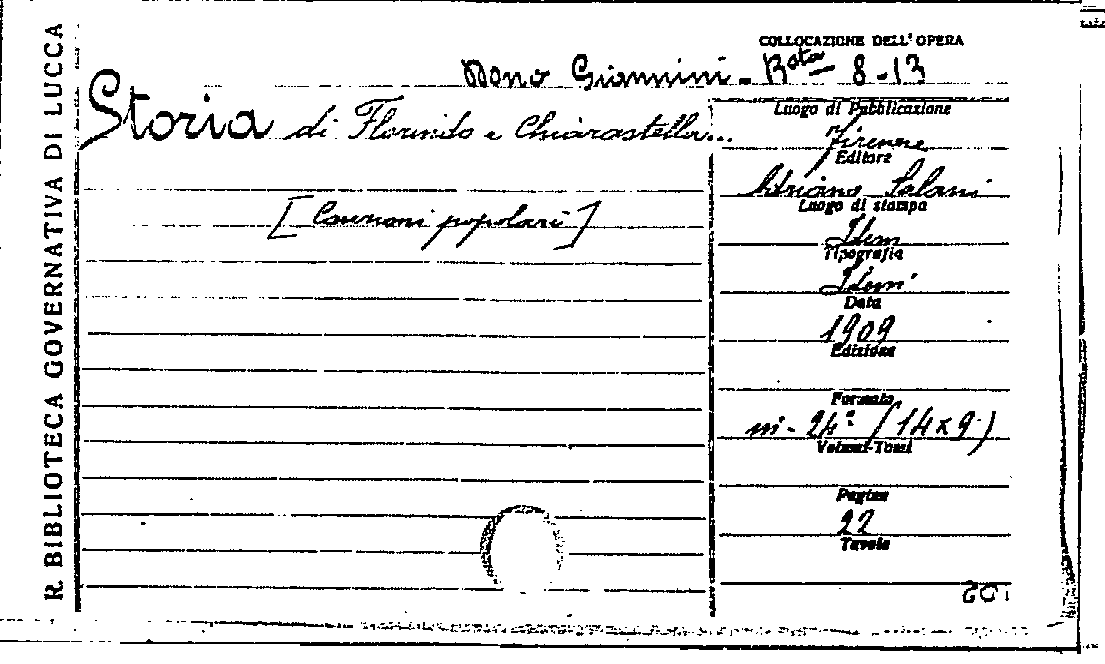 R. BIBLIOTECA GOVERNATIVA DI LUCCA
COLLOCAZIONE DELL'OPERA
Dono Giannini - Bta 8-13
Storia di Florindo e Chiarastella...
[Canzoni popolari]
Luogo di Pubblicazione
Firenze
Editore
Adriano Salani
Luogo di stampa
Idem
Tipografia
Idem
Data
1909
Edizione
Formato
in-24° (14x9)
Volumi-Tomi
Pagine
22
Tavole